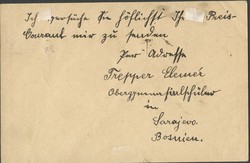 Ich versuche Sie höflichst Ihr Preis-
Courant mir zu senden
Per Adresse
Trepper Elemér
Obergymnasialschüler
in
Sarajevo.
Bosnien.